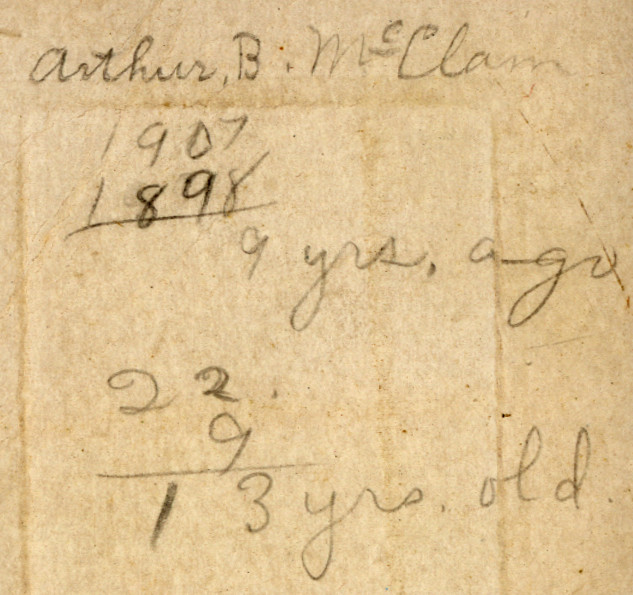 Arthur, B. McClam
1907
1898
9 yrs. ago
22.
9
13 yrs. old.